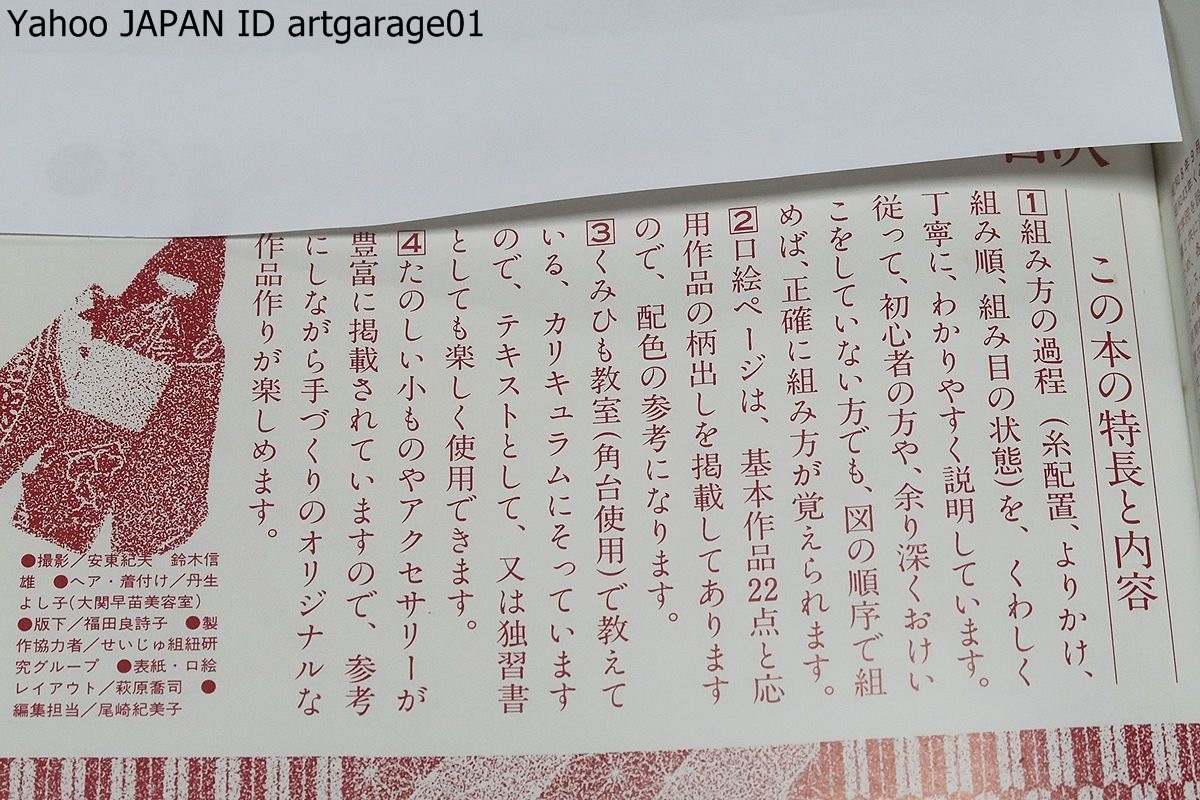 Yahoo JAPAN ID artgarage01
この本の特長と内容
1組み方の過程（糸配置、よりかけ、
組み順、組み目の状態）を、くわしく
丁寧に、わかりやすく説明しています。
従って、初心者の方や、余り深くおけい
こをしていない方でも、図の順序で組
めば、正確に組み方が覚えられます。
2口絵ページは、基本作品22点と応
用作品の柄出しを掲載してあります
ので、配色の参考になります。
3くみひも教室（角台使用）で教えて
いる、カリキュラムにそっています
ので、テキストとして、又は独習書
としても楽しく使用できます。
4たのしい小ものやアクセサリーが
豊富に掲載されていますので、参考
にしながら手づくりのオリジナルな
作品作りが楽しめます。
●撮影／安東紀夫　鈴木信
雄　●ヘア・着付け／丹生
よし子（大関早苗美容室）
●版下／福田良詩子　●製
作協力者／せいじゅ組紐研
究グループ　●表紙・口絵
レイアウト／萩原喬司　●
編集担当／尾崎紀美子